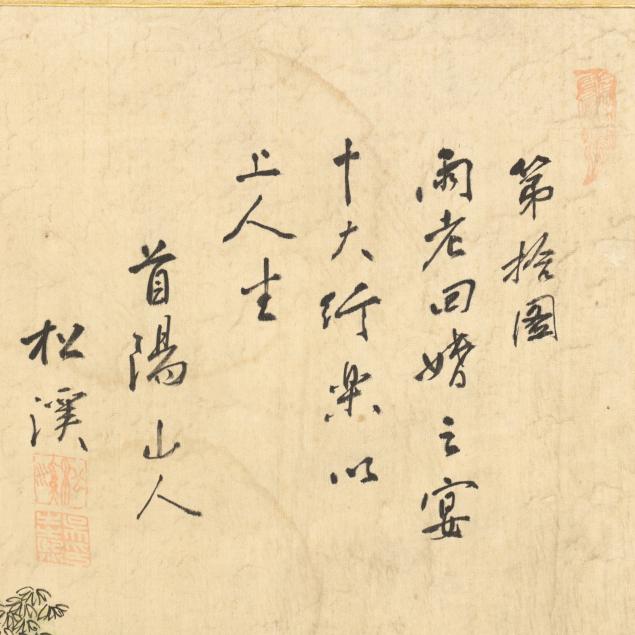 第拾圖
兩老回婚之宴
十大行樂以
上人生
首陽山人
松溪